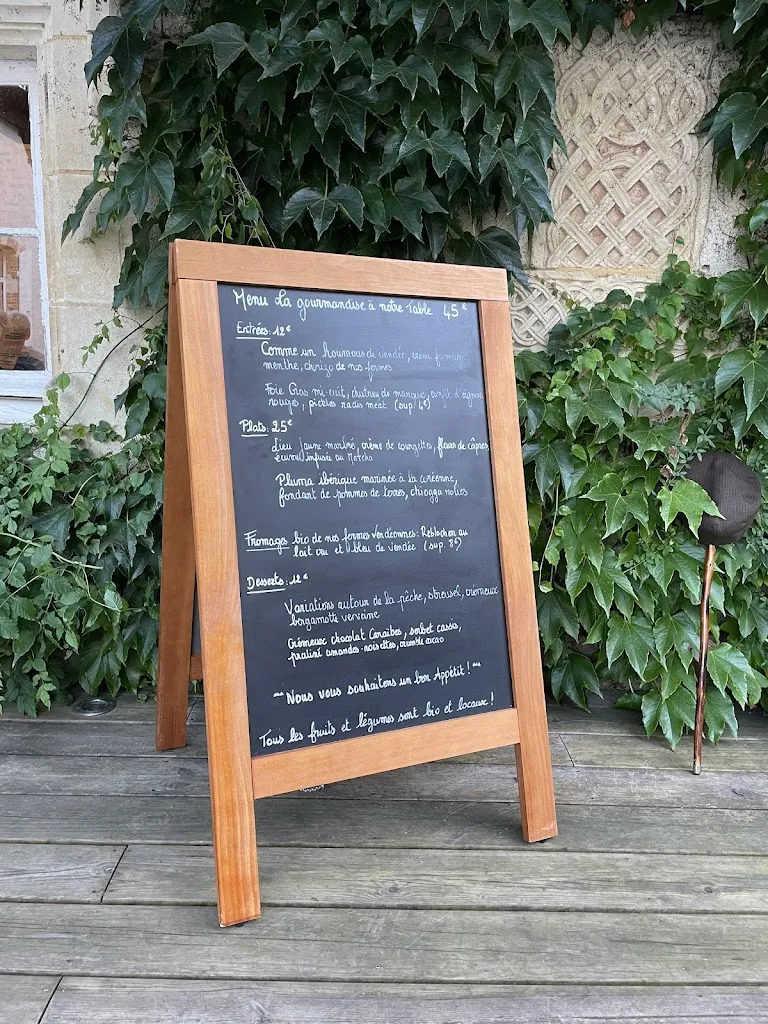 Menu La gourmandise à notre Table 45€
Entrées: 12€
Comme un houmous de vendée, 
menthe, chorizo de nos fermes
Foie Gras mi-cuit, chutney de mangue, confit d'oignons
rouges, pickles radis meat (sup. 4€)
Plats: 25€
Lieu jaune marbré, crème de courgettes, fleurs de câpres,
écume infusée au Matcha
Pluma ibérique marinée à la
fondant de pommes de terres, chiogga rôties
Fromages bio de nos fermes Vendéennes: Reblochon au
lait cru et bleu de vendée (sup. 8€)
Desserts: 12€
Variations autour de la pêche, streusel, crémeux
bergamott verveine
Crémeux chocolat Caraïbes, sorbet cassis,
praliné amandes-noisettes, crumble cacao
~Nous vous souhaitons un bon Appétit!~
Tous les fruits et légumes sont bio et locaux!